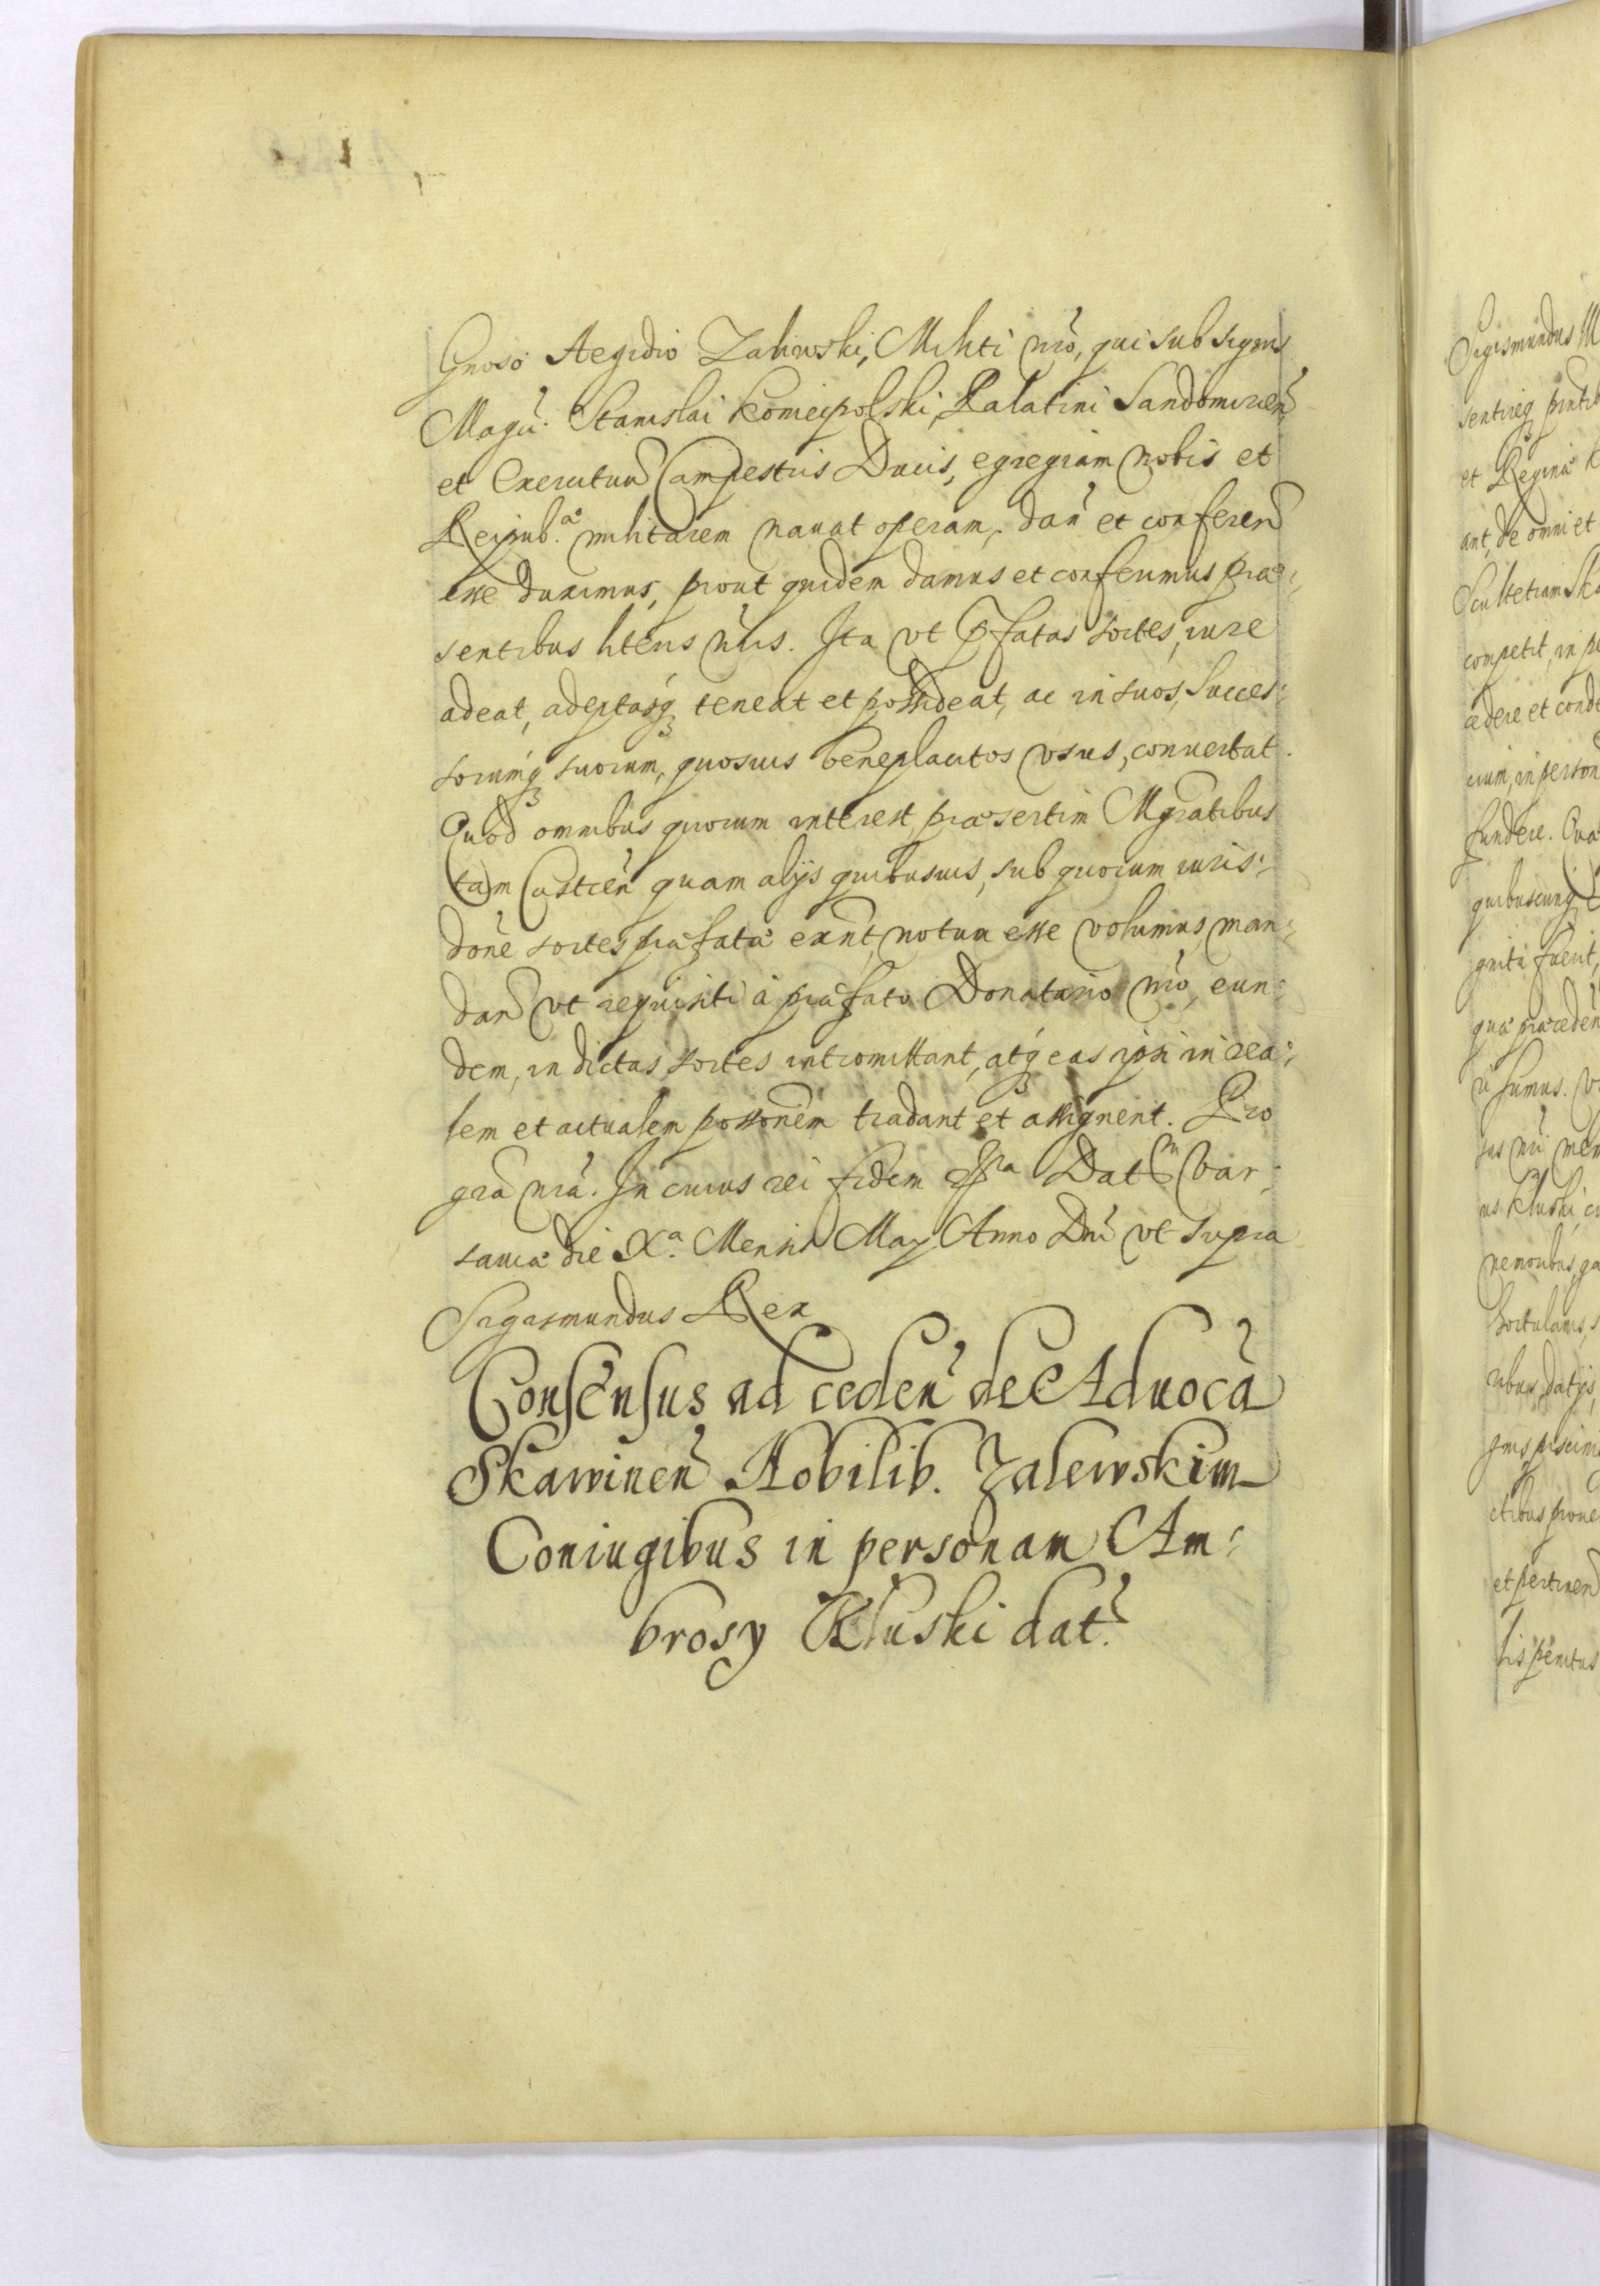 Gnoso Aegidio Zaliwski, Militi nro, qui sub signis
Magci. Stanislai Koniecpolski, Palatini Sandomirien
et Exercituu Campestris Ducis, egregiam nobis et
Reipub.ae militarem nauat operam, dan et conferen
esse duximus, prout quidem damus et conferimus prae:
sentibus literis nris. Ita vt pfatas sortes, iure
adeat, adeptasq teneat et possideat, ac in suos, Succes:
sorumq suorum, quosuis beneplacitos vsus, conuertat.
Quod omnibus quorum interest, praesertim Mgratibus
tam Castren quam alijs quibusuis, sub quorum iuris:
done sortes praefatae exnt, notum esse volumus, man:
dan vt requisiti à praefato Donatario nro, eun:
dem, in dictas sortes intromittant, atq eas ipsi in rea:
lem et actualem possonem tradant et assignent. Pro
gra nra. In cuius rei fidem Dat Var:
sauiae die Xa. Mensis May Anno Dni vt supra
Sigismundus Rex
Consensus ad ceden de Aduoca
Skawinen Nobilib. Zalewskim
Coniugibus in personam Am:
brosy Kluski dat.
Sigismundus
sentireq
et Reginae
ant, de omni et
Scultetiam
competit, in
cedere et
in person
fundere.
quibuscunq
fuerit,
sumus.
ius nri
Kluski,
nemoribus,
hortulanis,
et pertinen
penitus